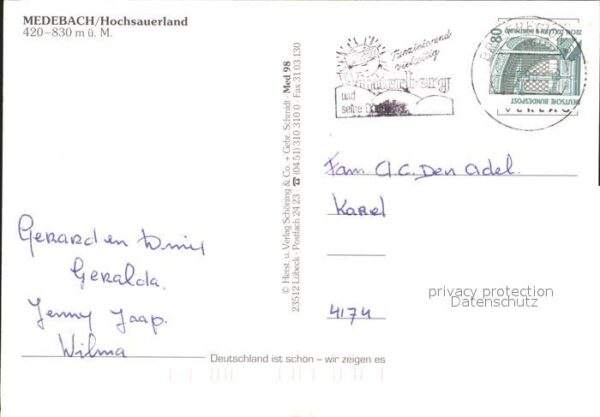 MEDEBACH/Hochsauerland
420–830 m ü. M.
Gerard en Winy
Geralda.
Jenny Jaap.
Wilma
Deutschland ist schön – wir zeigen es
© Herst. u. Verlag Schöning & Co. + Gebr. Schmidt · Med 98
23512 Lübeck · Postfach 24 23 · ☎ (04 51) 310 310 0 · Fax 31 03 130
Faszinierend
vielseitig
Winterberg
und
seine
80
DEUTSCHE BUNDESPOST
Fam A.C. Den Adel.
Karel
4174
privacy protection
Datenschutz